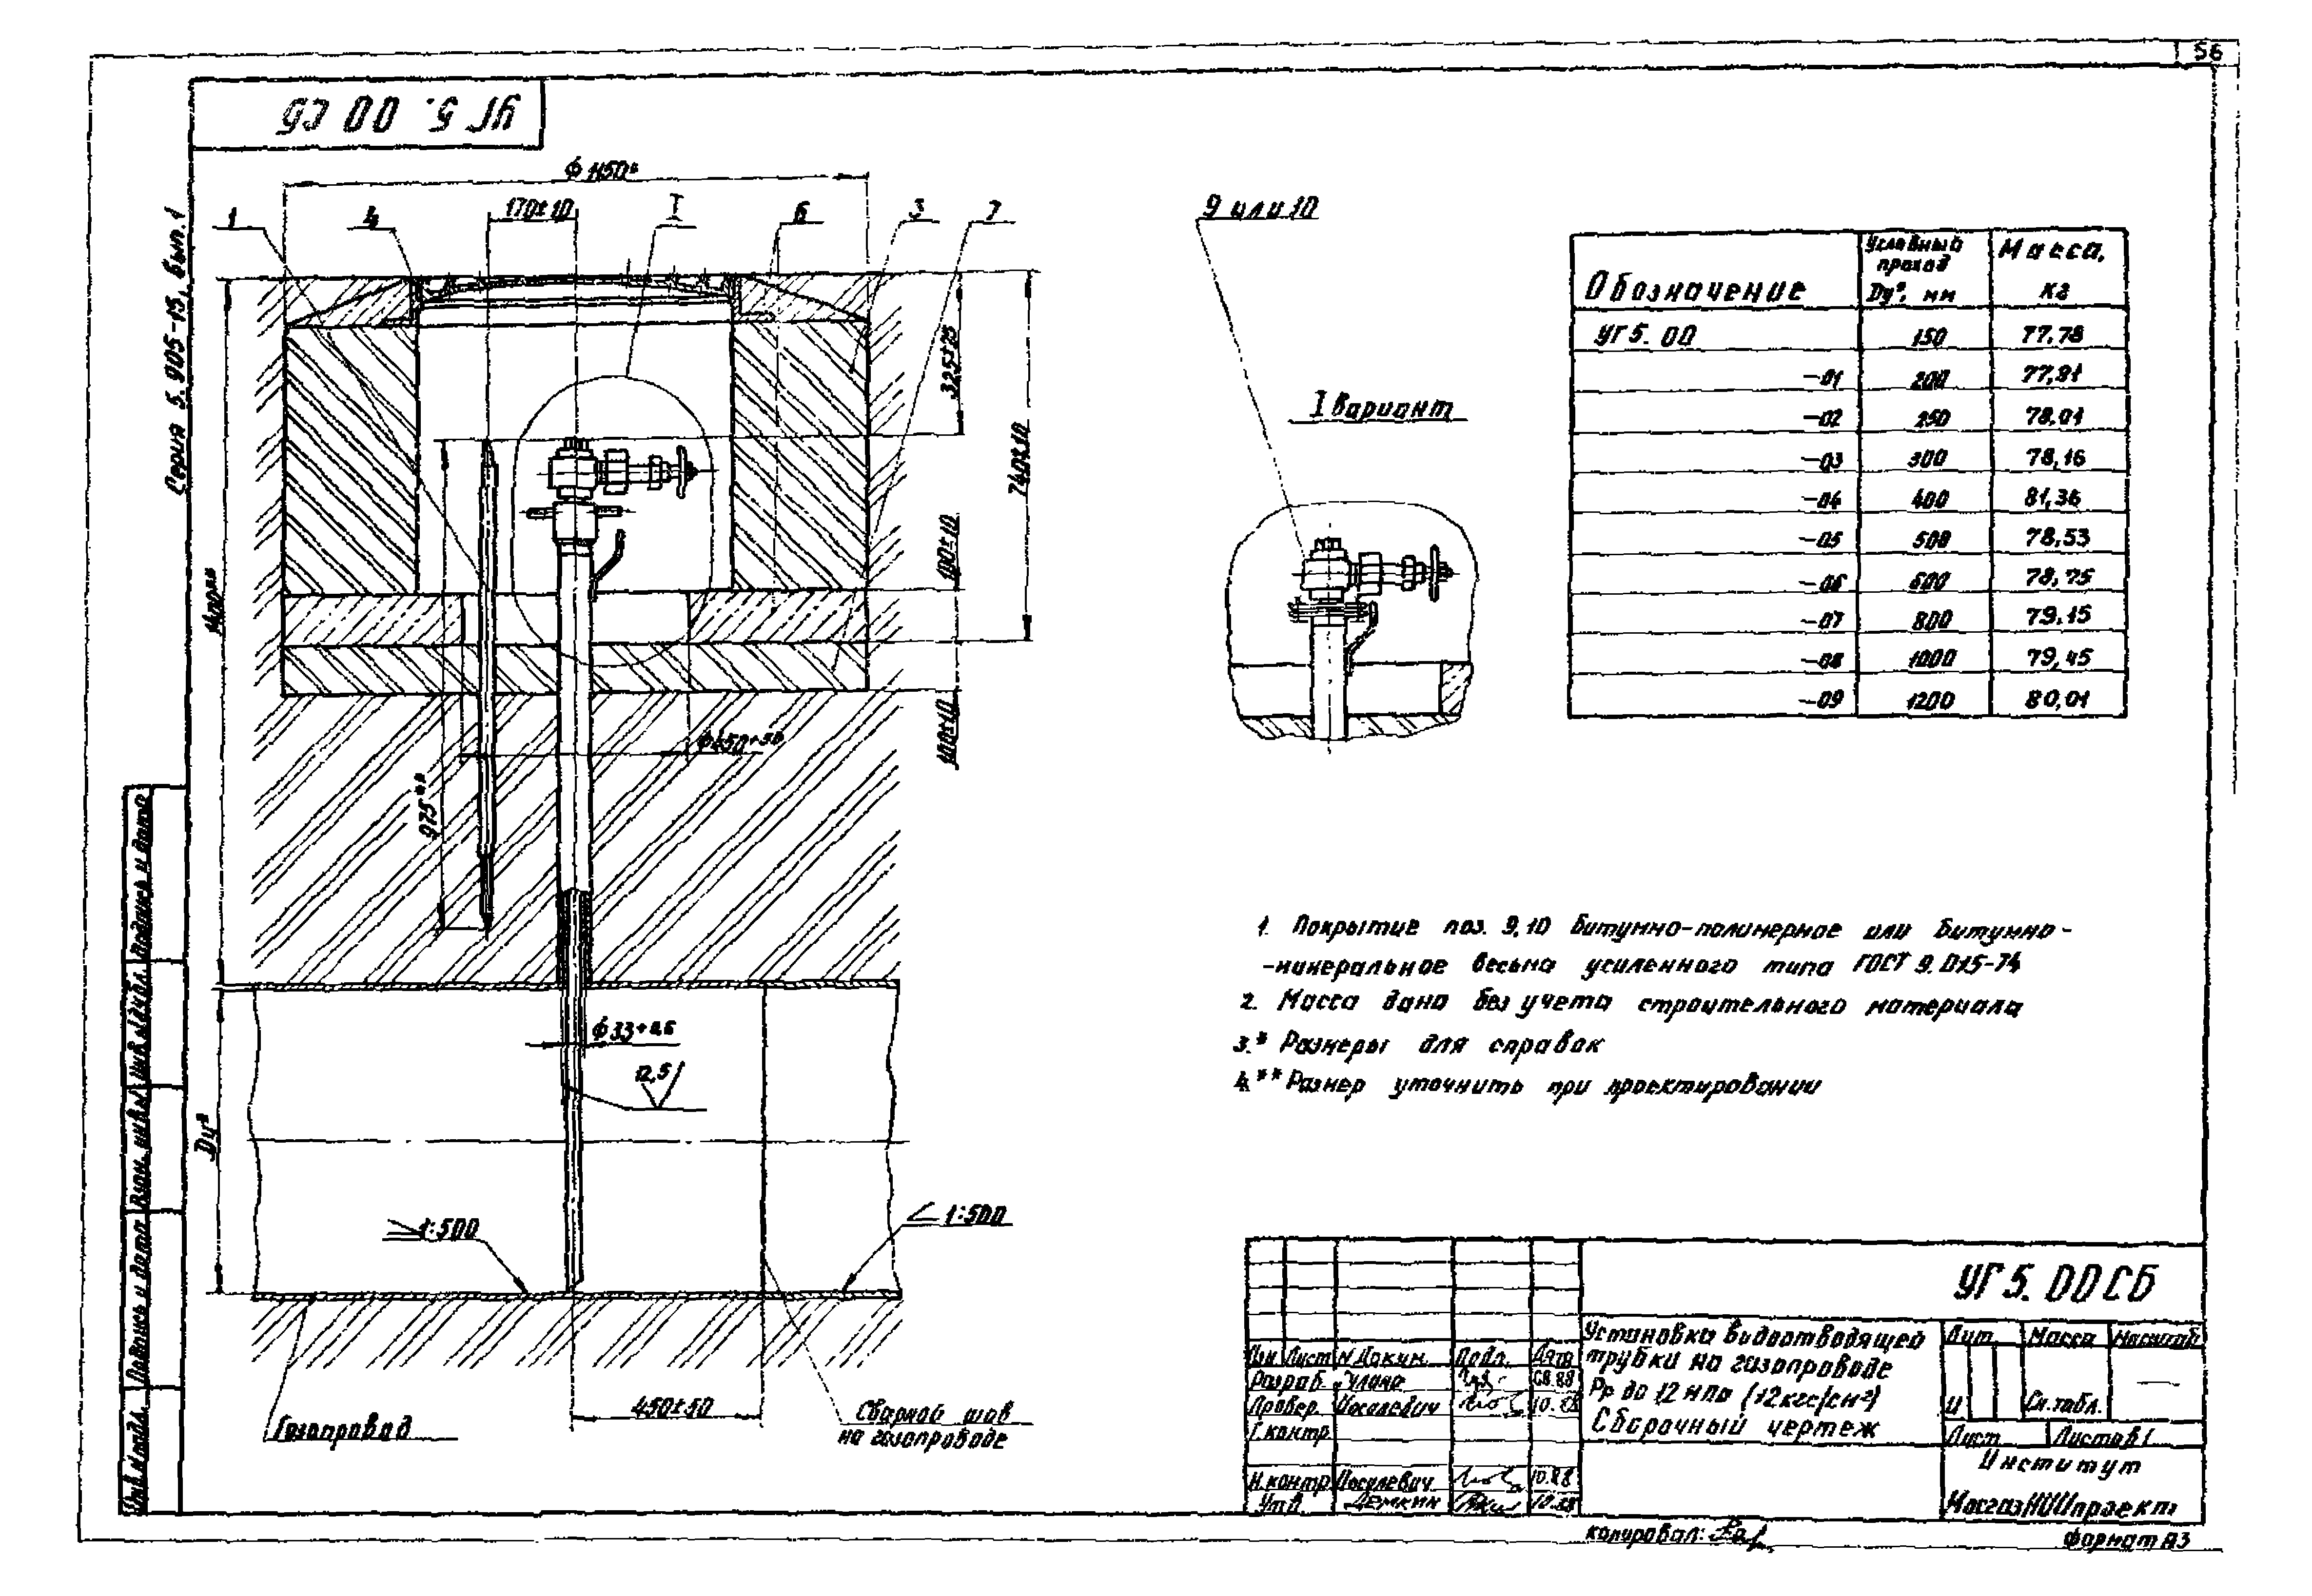 56
УГ 5. 00 СБ
Серия 5.905-15, вып. 1
ϕ 1150*
170±10
I
1
4
6
3
7
9 или 10
I вариант
325±25
740±10
100±10
100±10
1400**
975**
ϕ450+50
ϕ33+0,6
12,5
Dу*
≥1:500
∠ 1:500
450±50
Газопровод
Сварной шов
на газопроводе
Обозначение
Условный проход Dу*, мм
Масса, кг
УГ 5. 00 150 77,78
-01 200 77,81
-02 250 78,01
-03 300 78,16
-04 400 81,36
-05 500 78,53
-06 600 78,75
-07 800 79,15
-08 1000 79,45
-09 1200 80,01
1. Покрытие поз. 9,10 битумно-полимерное или битумно-
-минеральное весьма усиленного типа ГОСТ 9.015-74
2. Масса дана без учета строительного материала
3.* Размеры для справок
4.** Размер уточнить при проектировании
УГ 5. 00 СБ
Установка водоотводящей
трубки на газопроводе
Рр до 1,2 МПа (12 кгс/см²)
Сборочный чертеж
Лит. Масса Масштаб
И См. табл. —
Лист Листов 1
Институт
МосгазНИИпроект
Изм Лист № Докум. Подп. Дата
Разраб. 08.88
Провер. Иосилевич 10.88
Т.контр
Н.контр Иосилевич 10.88
Утв. Демкин 10.88
Копировал:
Формат А3
Подпись и дата
Инв. № дубл.
Взам. инв. №
Подпись и дата
Инв. № подл.